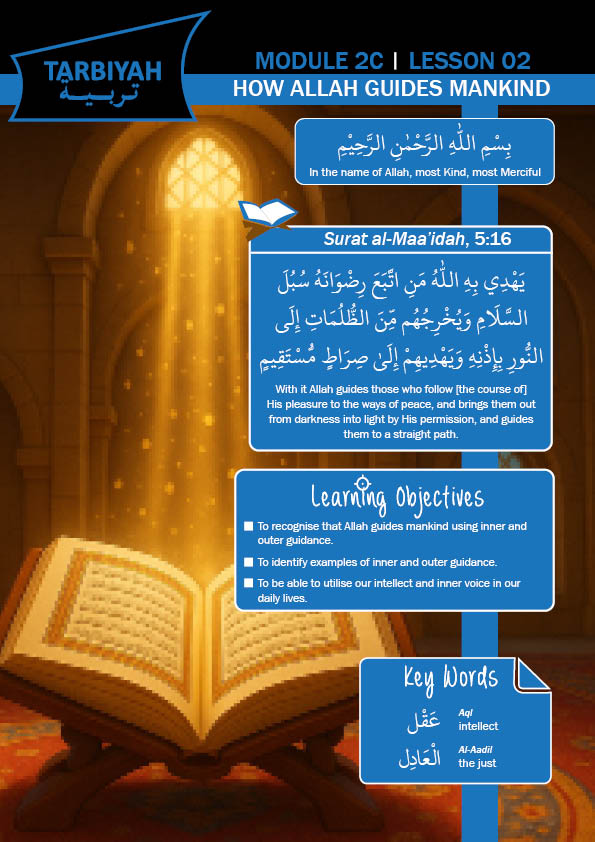 TARBIYAH
تربية
MODULE 2C | LESSON 02
HOW ALLAH GUIDES MANKIND
بِسْمِ اللّٰهِ الرَّحْمٰنِ الرَّحِيْمِ
In the name of Allah, most Kind, most Merciful
Surat al-Maa'idah, 5:16
يَهْدِي بِهِ اللّٰهُ مَنِ اتَّبَعَ رِضْوَانَهُ سُبُلَ
السَّلَامِ وَيُخْرِجُهُم مِّنَ الظُّلُمَاتِ إِلَى
النُّورِ بِإِذْنِهِ وَيَهْدِيهِمْ إِلَىٰ صِرَاطٍ مُّسْتَقِيمٍ
With it Allah guides those who follow [the course of]
His pleasure to the ways of peace, and brings them out
from darkness into light by His permission, and guides
them to a straight path.
Learning Objectives
To recognise that Allah guides mankind using inner and
outer guidance.
To identify examples of inner and outer guidance.
To be able to utilise our intellect and inner voice in our
daily lives.
Key Words
عَقْل
Aql
intellect
الْعَادِل
Al-Aadil
the just